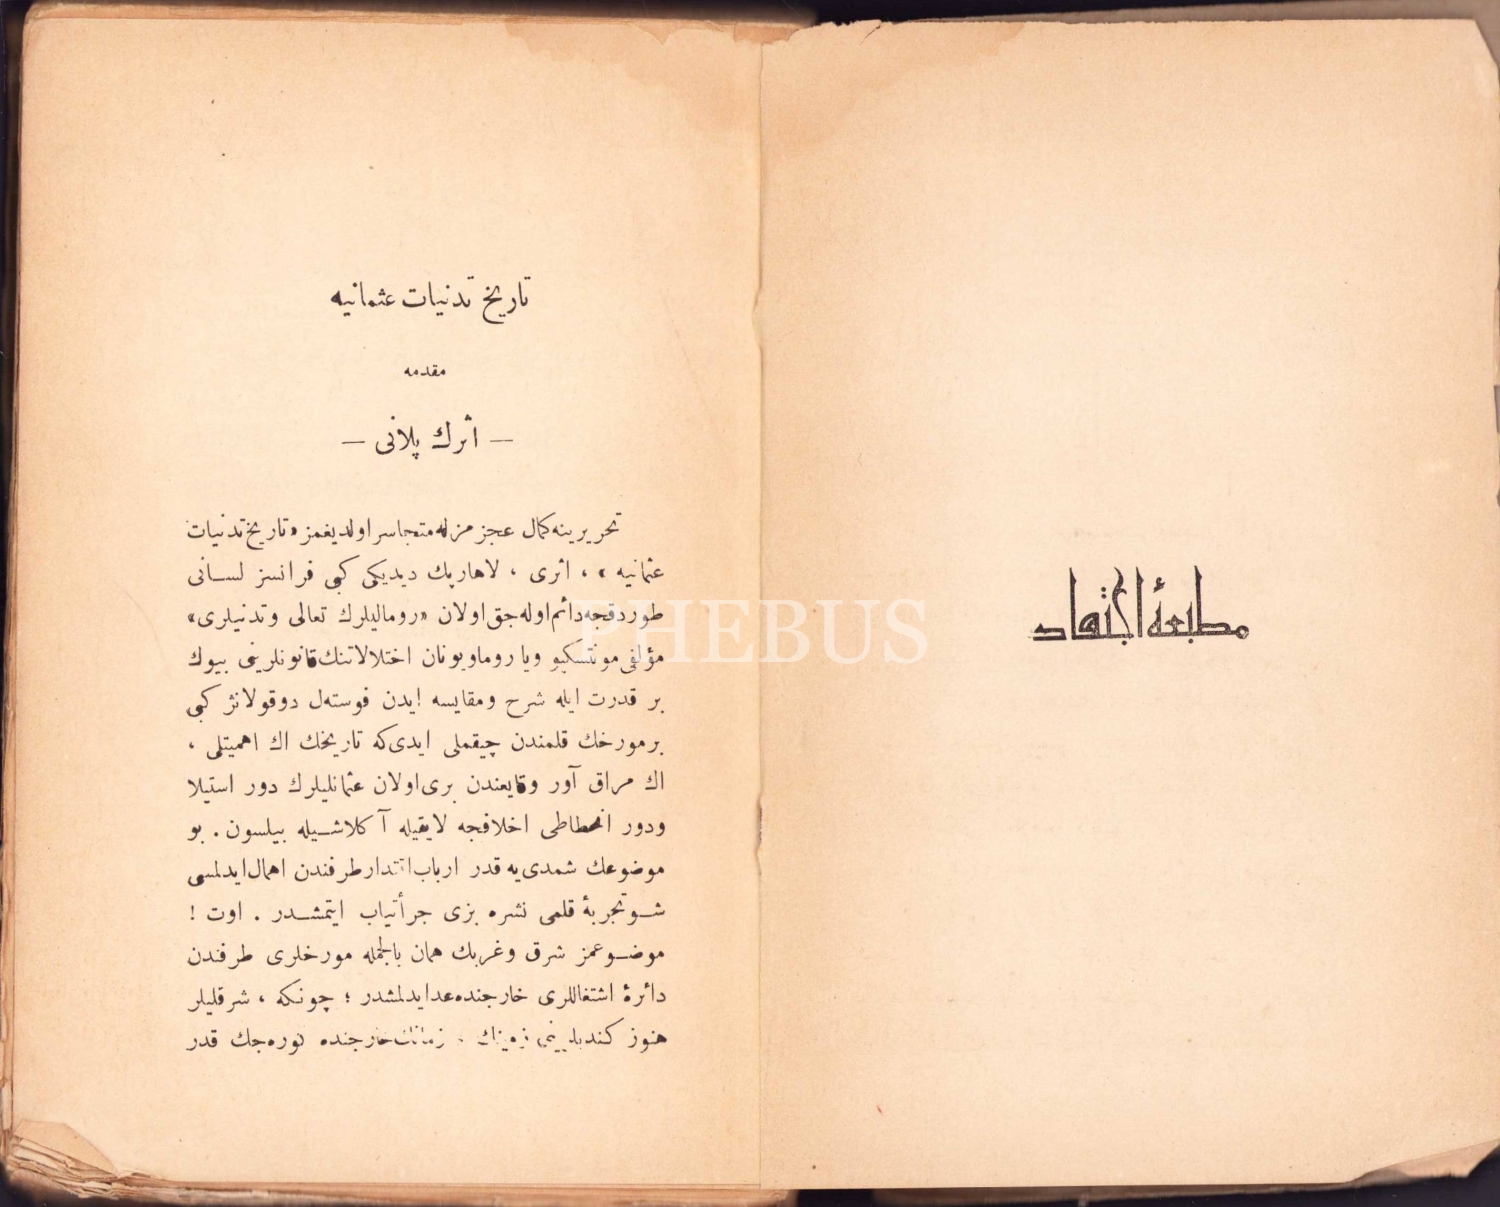 مطبعهٔ اجتهاد
تاریخ تدنیات عثمانیه
مقدمه
— اثرك پلانی —
تحریرینه كمال عجز مزله متجاسر اولدیغمز «تاریخ تدنیات
عثمانیه » ، اثری ، لاهارپك دیدیكی كبی فرانسز لسانی
طوردقجه دائم اوله جق اولان «رومالیلرك تعالی و تدنیلری»
مؤلفی مونتسكیو ویا روما ویونان اختلالاتنك قانونلرینی بیوك
بر قدرت ایله شرح و مقایسه ایدن فوسته‌ل دوقولانژ كبی
بر مورخك قلمندن چیقملی ایدی كه تاریخك اك اهمیتلی ،
اك مراق آور وقایعندن بری اولان عثمانلیلرك دور استیلا
ودور انحطاطی اخلافجه لایقیله آكلاشیله بیلسون . بو
موضوعك شمدی‌یه قدر ارباب اقتدار طرفندن اهمال ایدلمسی
شو تجربهٔ قلمی نشره بزی جرأتیاب ایتمشدر . اوت !
موضوعمز شرق و غربك همان بالجمله مورخلری طرفندن
دائرهٔ اشتغاللری خارجنده عد ایدلمشدر ؛ چونكه ، شرقلیلر
هنوز كندیلرینی زمینك ، زمانك خارجنده كوره‌جك قدر
PHEBUS